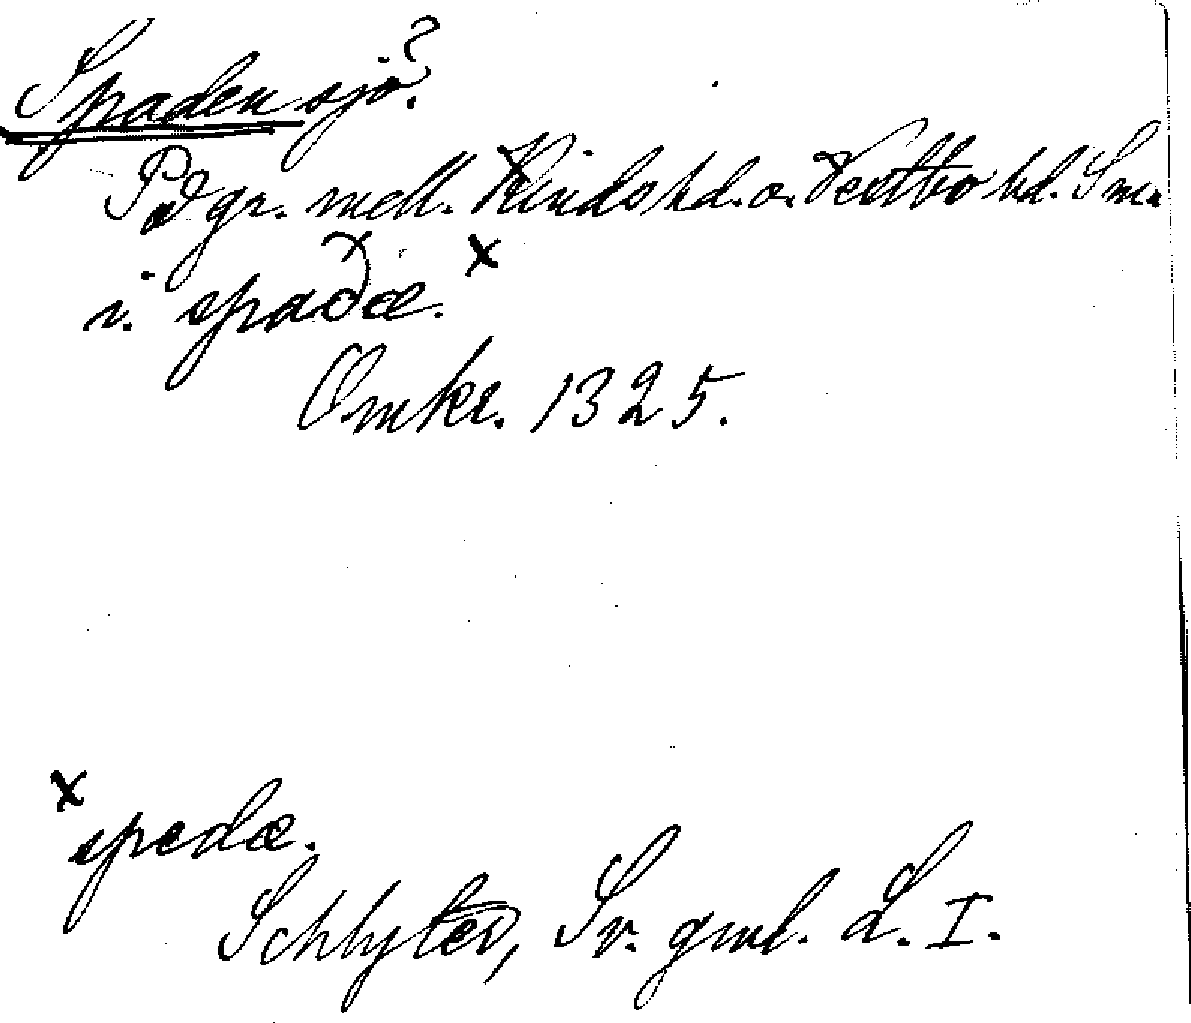 Spaden sjö?
På gr. mell. Kinds hd. o. Vestbo hd. Sm.
i. spaðæ. x
Omkr. 1325.
x spedæ.
Schlyter, Sv. gml. L. I.